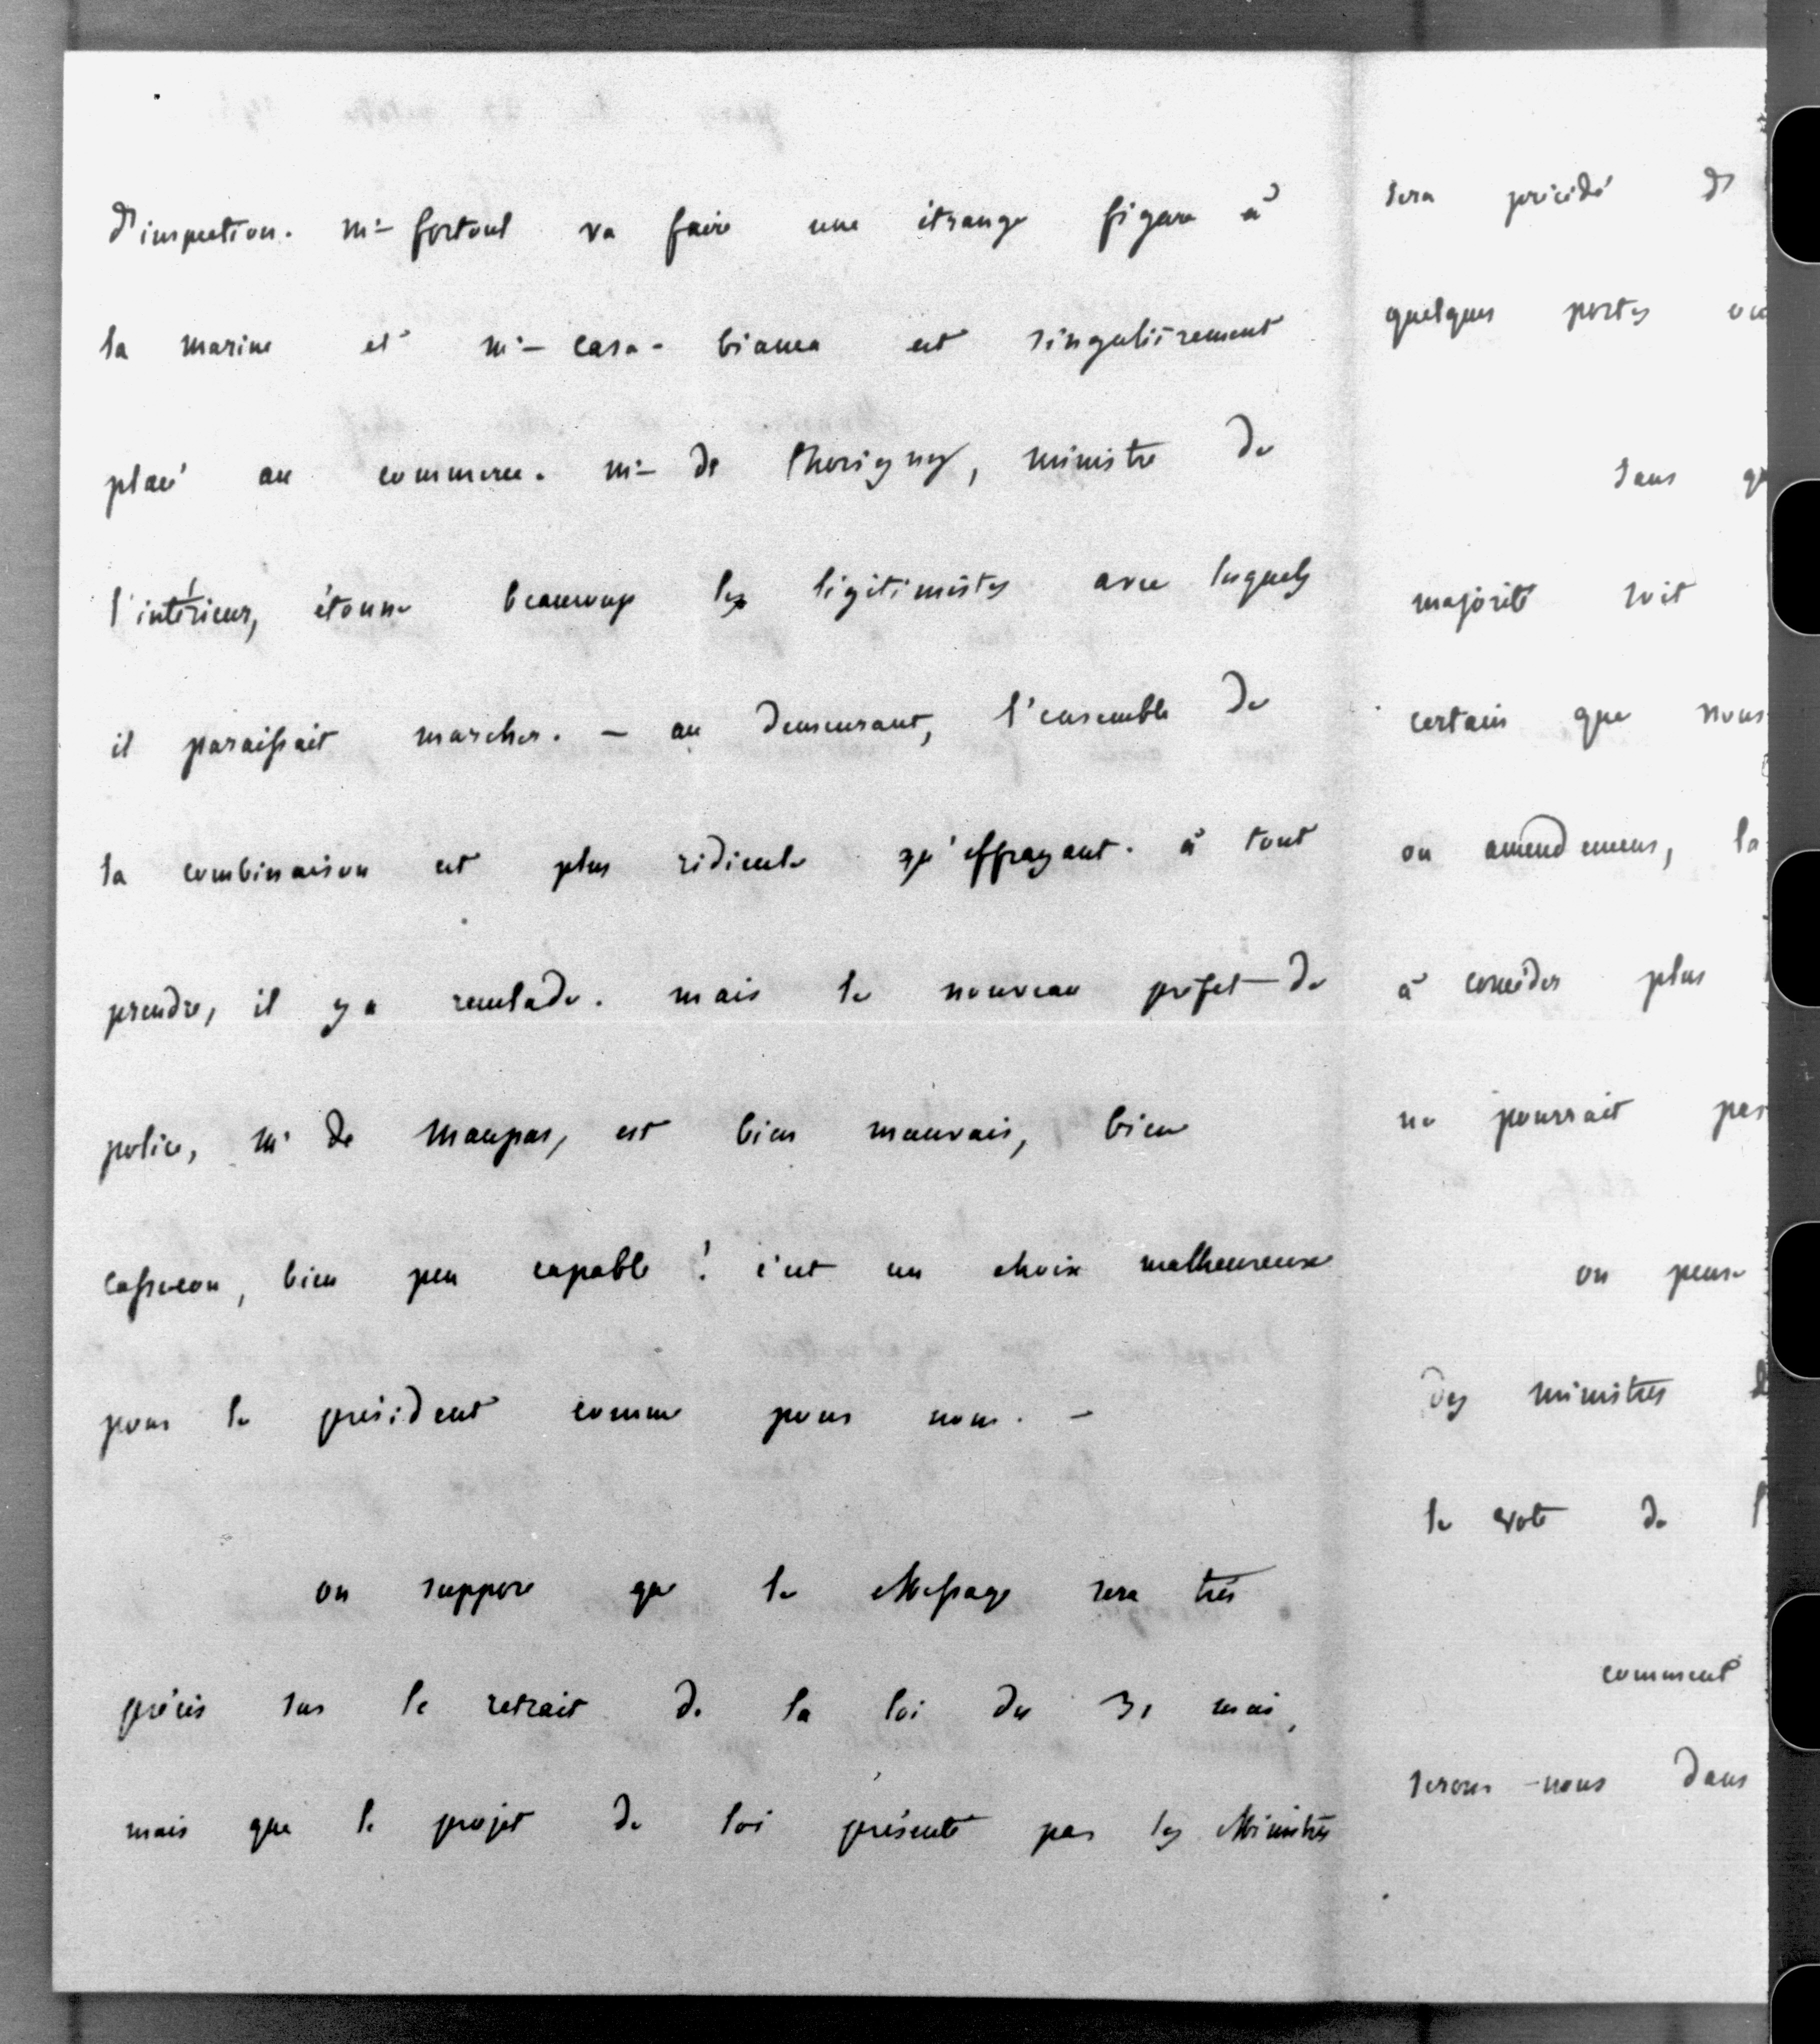 d'inspection. mr fortoul va faire une étrange figure à
la marine et mr casa-bianca est singulièrement
placé au commerce. mr de Thorigny, ministre de
l'intérieur, étonne beaucoup les légitimistes avec lesquels
il paraissait marcher. — au demeurant, l'ensemble de
la combinaison est plus ridicule qu'effrayant. à tout
prendre, il y a reculade. mais le nouveau préfet de
police, mr de Maupas, est bien mauvais, bien
casse-cou, bien peu capable ! c'est un choix malheureux
pour le président comme pour nous. —
on suppose que le Message sera très
précis sur le retrait de la loi du 31 mai,
mais que le projet de loi présenté par les Ministres
sera précédé d
quelques portes
sans
majorité soit
certain que nous
ou amendemens, la
à concéder plus
ne pourrait pas
on pense
des ministres
le vote de l
comment
serons-nous dans